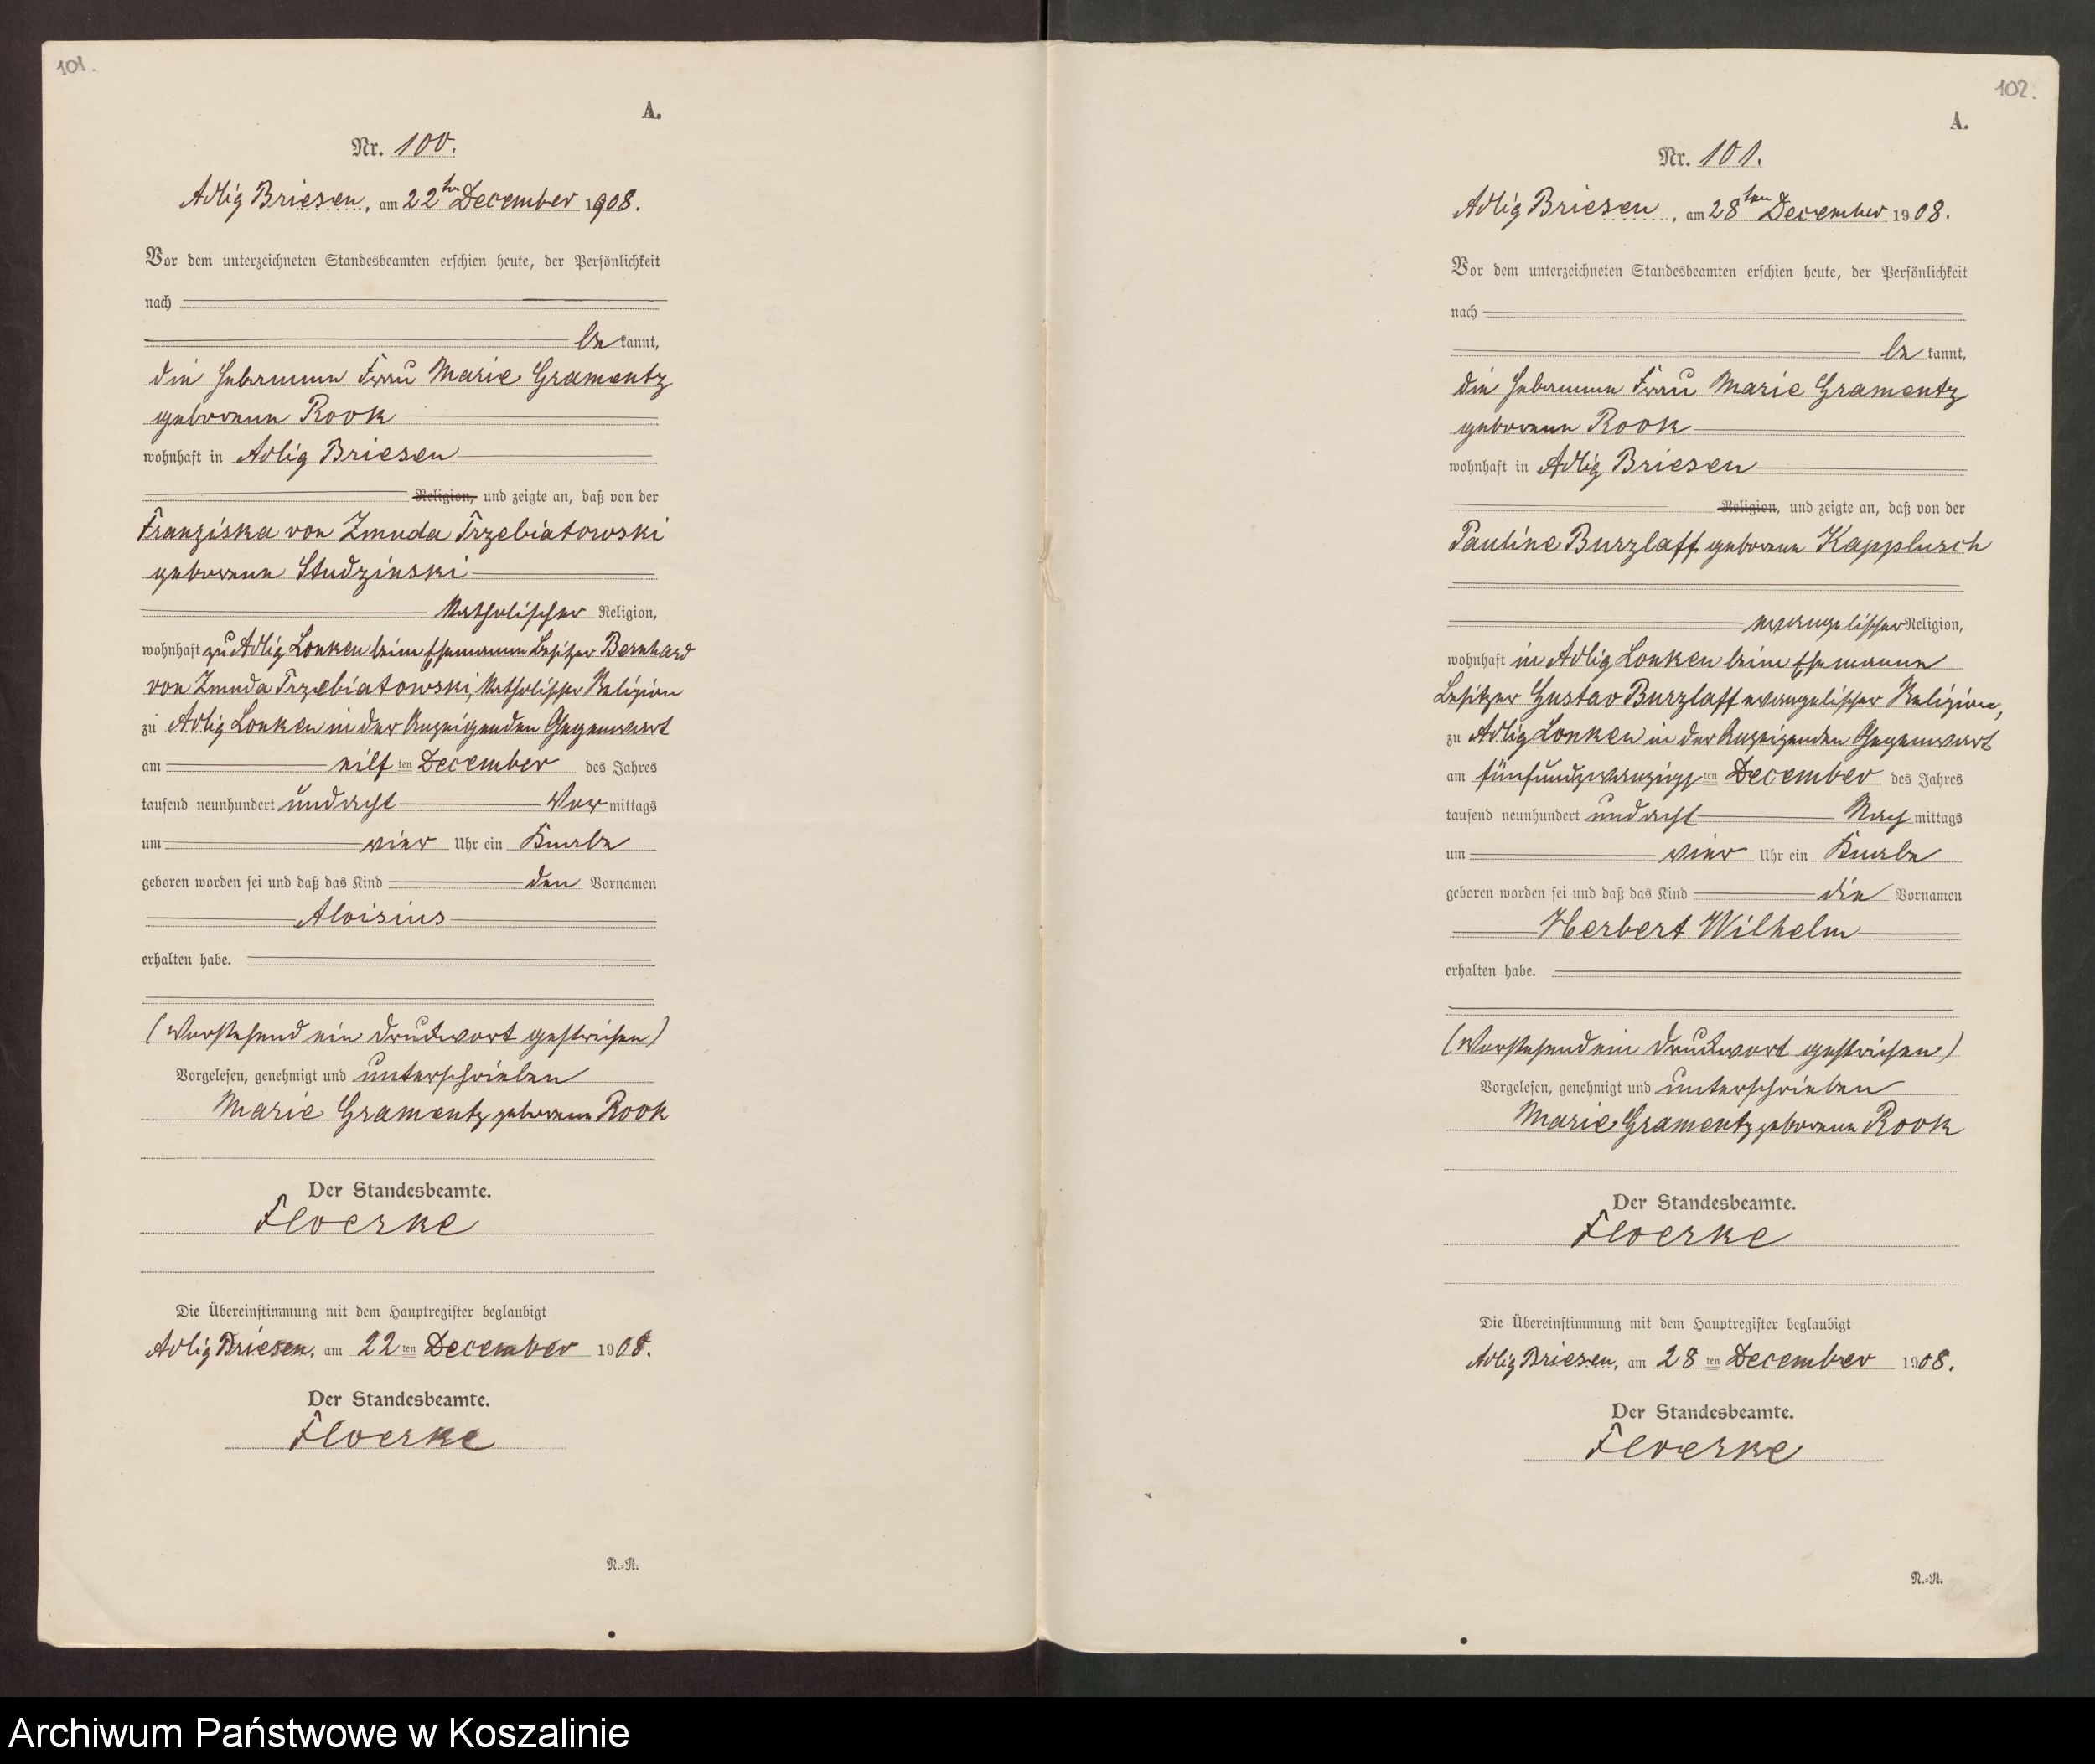 101.
A.
Nr. 100.
Adlig Briesen, am 22ten December 1908.
Vor dem unterzeichneten Standesbeamten erschien heute, der Persönlichkeit
nach
bekannt,
die Hebamme Frau Marie Gramentz
geborene Rook
wohnhaft in Adlig Briesen
Religion, und zeigte an, daß von der
Franziska von Zmuda Trzebiatowski
geborene Studzinski
katholischer Religion,
wohnhaft zu Adlig Lonken beim Ehemanne Besitzer Bernhard
von Zmuda Trzebiatowski, katholischer Religion
zu Adlig Lonken in der Anzeigenden Gegenwart
am elften December des Jahres
tausend neunhundert und acht Vormittags
um vier Uhr ein Knabe
geboren worden sei und daß das Kind den Vornamen
Aloisius
erhalten habe.
(Vorstehend ein Druckwort gestrichen)
Vorgelesen, genehmigt und unterschrieben
Marie Gramentz geborene Rook
Der Standesbeamte.
Floerke
Die Übereinstimmung mit dem Hauptregister beglaubigt
Adlig Briesen, am 22ten December 1908.
Der Standesbeamte.
Floerke
N.=N.
102.
A.
Nr. 101.
Adlig Briesen, am 28ten December 1908.
Vor dem unterzeichneten Standesbeamten erschien heute, der Persönlichkeit
nach
bekannt,
die Hebamme Frau Marie Gramentz
geborene Rook
wohnhaft in Adlig Briesen
Religion, und zeigte an, daß von der
Pauline Burzlaff geborene Kapplusch
evangelischer Religion,
wohnhaft in Adlig Lonken beim Ehemanne
Besitzer Gustav Burzlaff evangelischer Religion,
zu Adlig Lonken in der Anzeigenden Gegenwart
am fünfundzwanzigsten December des Jahres
tausend neunhundert und acht Nachmittags
um vier Uhr ein Knabe
geboren worden sei und daß das Kind die Vornamen
Herbert Wilhelm
erhalten habe.
(Vorstehend ein Druckwort gestrichen)
Vorgelesen, genehmigt und unterschrieben
Marie Gramentz geborene Rook
Der Standesbeamte.
Floerke
Die Übereinstimmung mit dem Hauptregister beglaubigt
Adlig Briesen, am 28ten December 1908.
Der Standesbeamte.
Floerke
N.=N.
Archiwum Państwowe w Koszalinie